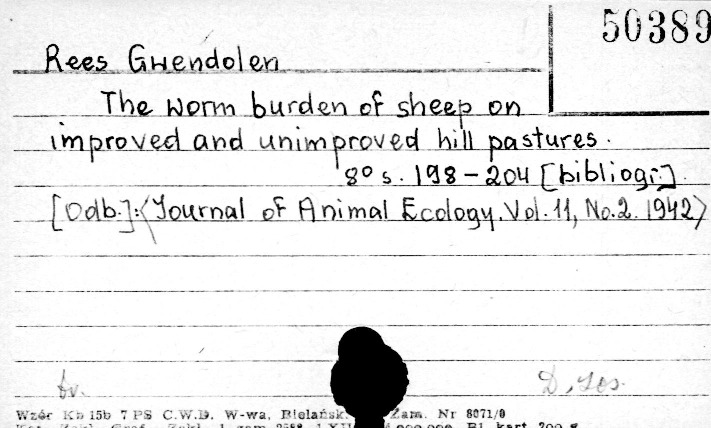 50389
Rees Gwendolen
The worm burden of sheep on
improved and unimproved hill pastures.
8° s. 198-204 [bibliogr.].
[Odb.]:<Journal of Animal Ecology. Vol. 11, No.2. 1942>
Wzór Kb 15b 7 PS C.W.D. W-wa, Bielańsk. Zam. Nr 8071/0